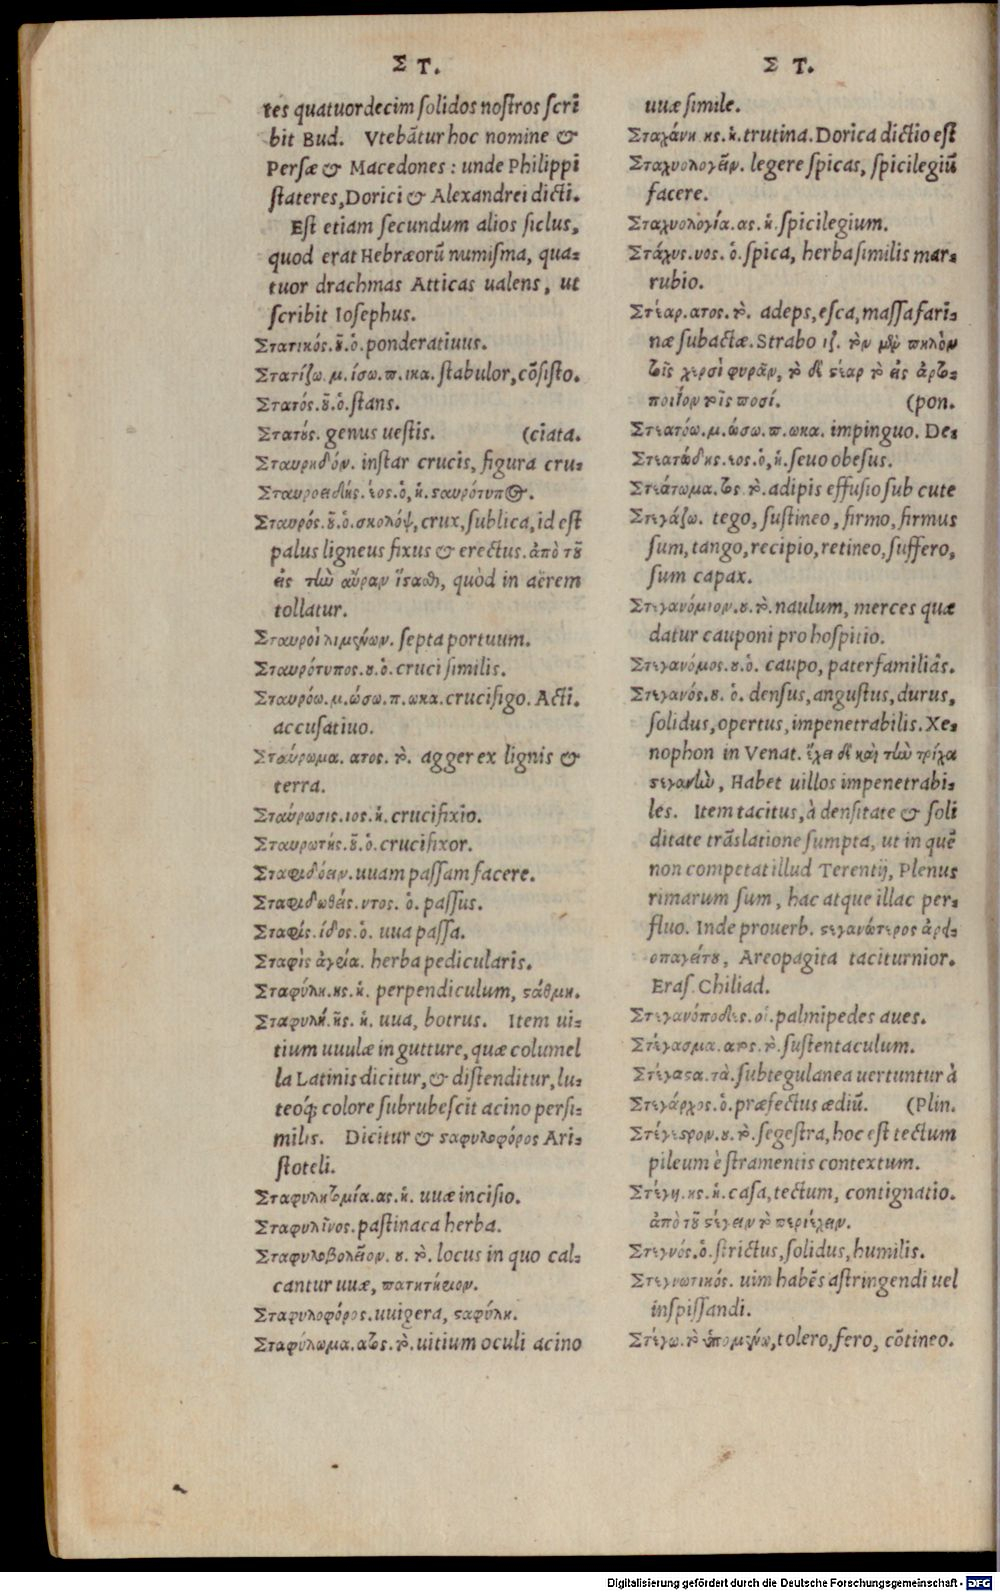 Σ Τ.
tes quatuordecim solidos nostros scrī
bit Bud. Vtebātur hoc nomine &
Persæ & Macedones: unde Philippi
stateres, Dorici & Alexandrei dicti.
Est etiam secundum alios siclus,
quod erat Hebræorū numisma, qua-
tuor drachmas Atticas ualens, ut
scribit Iosephus.
Στατικός.οῦ.ὁ. ponderatiuus.
Στατίζω.μ.ίσω.π.ικα. stabulor, cōsisto.
Στατός.οῦ.ὁ. stans.
Στατούς. genus uestis. (ciata.
Σταυρηδόν. instar crucis, figura cru-
Σταυροειδής.έος.ὁ,ἡ. σταυρότυπος.
Σταυρός.οῦ.ὁ. σκολόψ, crux, sublica, id est
palus ligneus fixus & erectus. ἀπὸ τοῦ
εἰς τὴν αὖραν ἵσταθαι, quòd in aërem
tollatur.
Σταυροὶ λιμένων. septa portuum.
Σταυρότυπος.ου.ὁ. cruci similis.
Σταυρόω.μ.ώσω.π.ωκα. crucifigo. Acti.
accusatiuo.
Σταύρωμα.ατος.τὸ. agger ex lignis &
terra.
Σταύρωσις.ιος.ἡ. crucifixio.
Σταυρωτής.οῦ.ὁ. crucifixor.
Σταφιδόειν. uuam passam facere.
Σταφιδωθείς.ντος.ὁ. passus.
Σταφίς.ίδος.ὁ. uua passa.
Σταφὶς ἀγρία. herba pedicularis.
Σταφύλη.ης.ἡ. perpendiculum, στάθμη.
Σταφυλή.ῆς.ἡ. uua, botrus. Item ui-
tium uuulæ in gutture, quæ columel
la Latinis dicitur, & distenditur, lu-
teoq́; colore subrubescit acino persi-
milis. Dicitur & σταφυλοφόρος Ari-
stoteli.
Σταφυλητομία.ας.ἡ. uuæ incisio.
Σταφυλῖνος. pastinaca herba.
Σταφυλοβολεῖον.ου.τὸ. locus in quo cal-
cantur uuæ, πατητήριον.
Σταφυλοφόρος. uuigera, σταφύλη.
Σταφύλωμα.ατος.τὸ. uitium oculi acino
Σ Τ.
uuæ simile.
Σταχάνη.ης.ἡ. trutina. Dorica dictio est
Σταχυολογεῖν. legere spicas, spicilegiū
facere.
Σταχυολογία.ας.ἡ. spicilegium.
Στάχυς.υος.ὁ. spica, herba similis mar-
rubio.
Στέαρ.ατος.τὸ. adeps, esca, massa fari-
næ subactæ. Strabo ιζ. τὸν μὲν πηλὸν
ταῖς χερσὶ φυρᾶν, τὸ δὲ στέαρ τὸ εἰς ἀρτο-
ποιΐαν τοῖς ποσί. (pon.
Στεατόω.μ.ώσω.π.ωκα. impinguo. De-
Στεατώδης.εος.ὁ,ἡ. seuo obesus.
Στεάτωμα.τος.τὸ. adipis effusio sub cute
Στεγάζω. tego, sustineo, firmo, firmus
sum, tango, recipio, retineo, suffero,
sum capax.
Στεγανόμιον.ου.τὸ. naulum, merces quæ
datur cauponi pro hospitio.
Στεγανόμος.ου.ὁ. caupo, paterfamiliâs.
Στεγανός.ου.ὁ. densus, angustus, durus,
solidus, opertus, impenetrabilis. Xe-
nophon in Venat. ἔχει δὲ καὶ τὴν τρίχα
στεγανὴν, Habet uillos impenetrabi-
les. Item tacitus, à densitate & soli
ditate trāslatione sumpta, ut in quē
non competat illud Terentij, Plenus
rimarum sum, hac atque illac per-
fluo. Inde prouerb. στεγανώτερος ἀρε-
οπαγείτου, Areopagita taciturnior.
Eras. Chiliad.
Στεγανόποδες.οἱ. palmipedes aues.
Στέγασμα.ατος.τὸ. sustentaculum.
Στέγαστα.τὰ. subtegulanea uertuntur à
Στεγάρχος.ὁ. præfectus ædiū. (Plin.
Στέγεστρον.ου.τὸ. segestra, hoc est tectum
pileum è stramentis contextum.
Στέγη.ης.ἡ. casa, tectum, contignatio.
ἀπὸ τοῦ στέγειν τὸ περιέχειν.
Στεγνός.ὁ. strictus, solidus, humilis.
Στεγνωτικός. uim habēs astringendi uel
inspissandi.
Στέγω. τὸ ὑπομένω, tolero, fero, cōtineo.
Digitalisierung gefördert durch die Deutsche Forschungsgemeinschaft - DFG